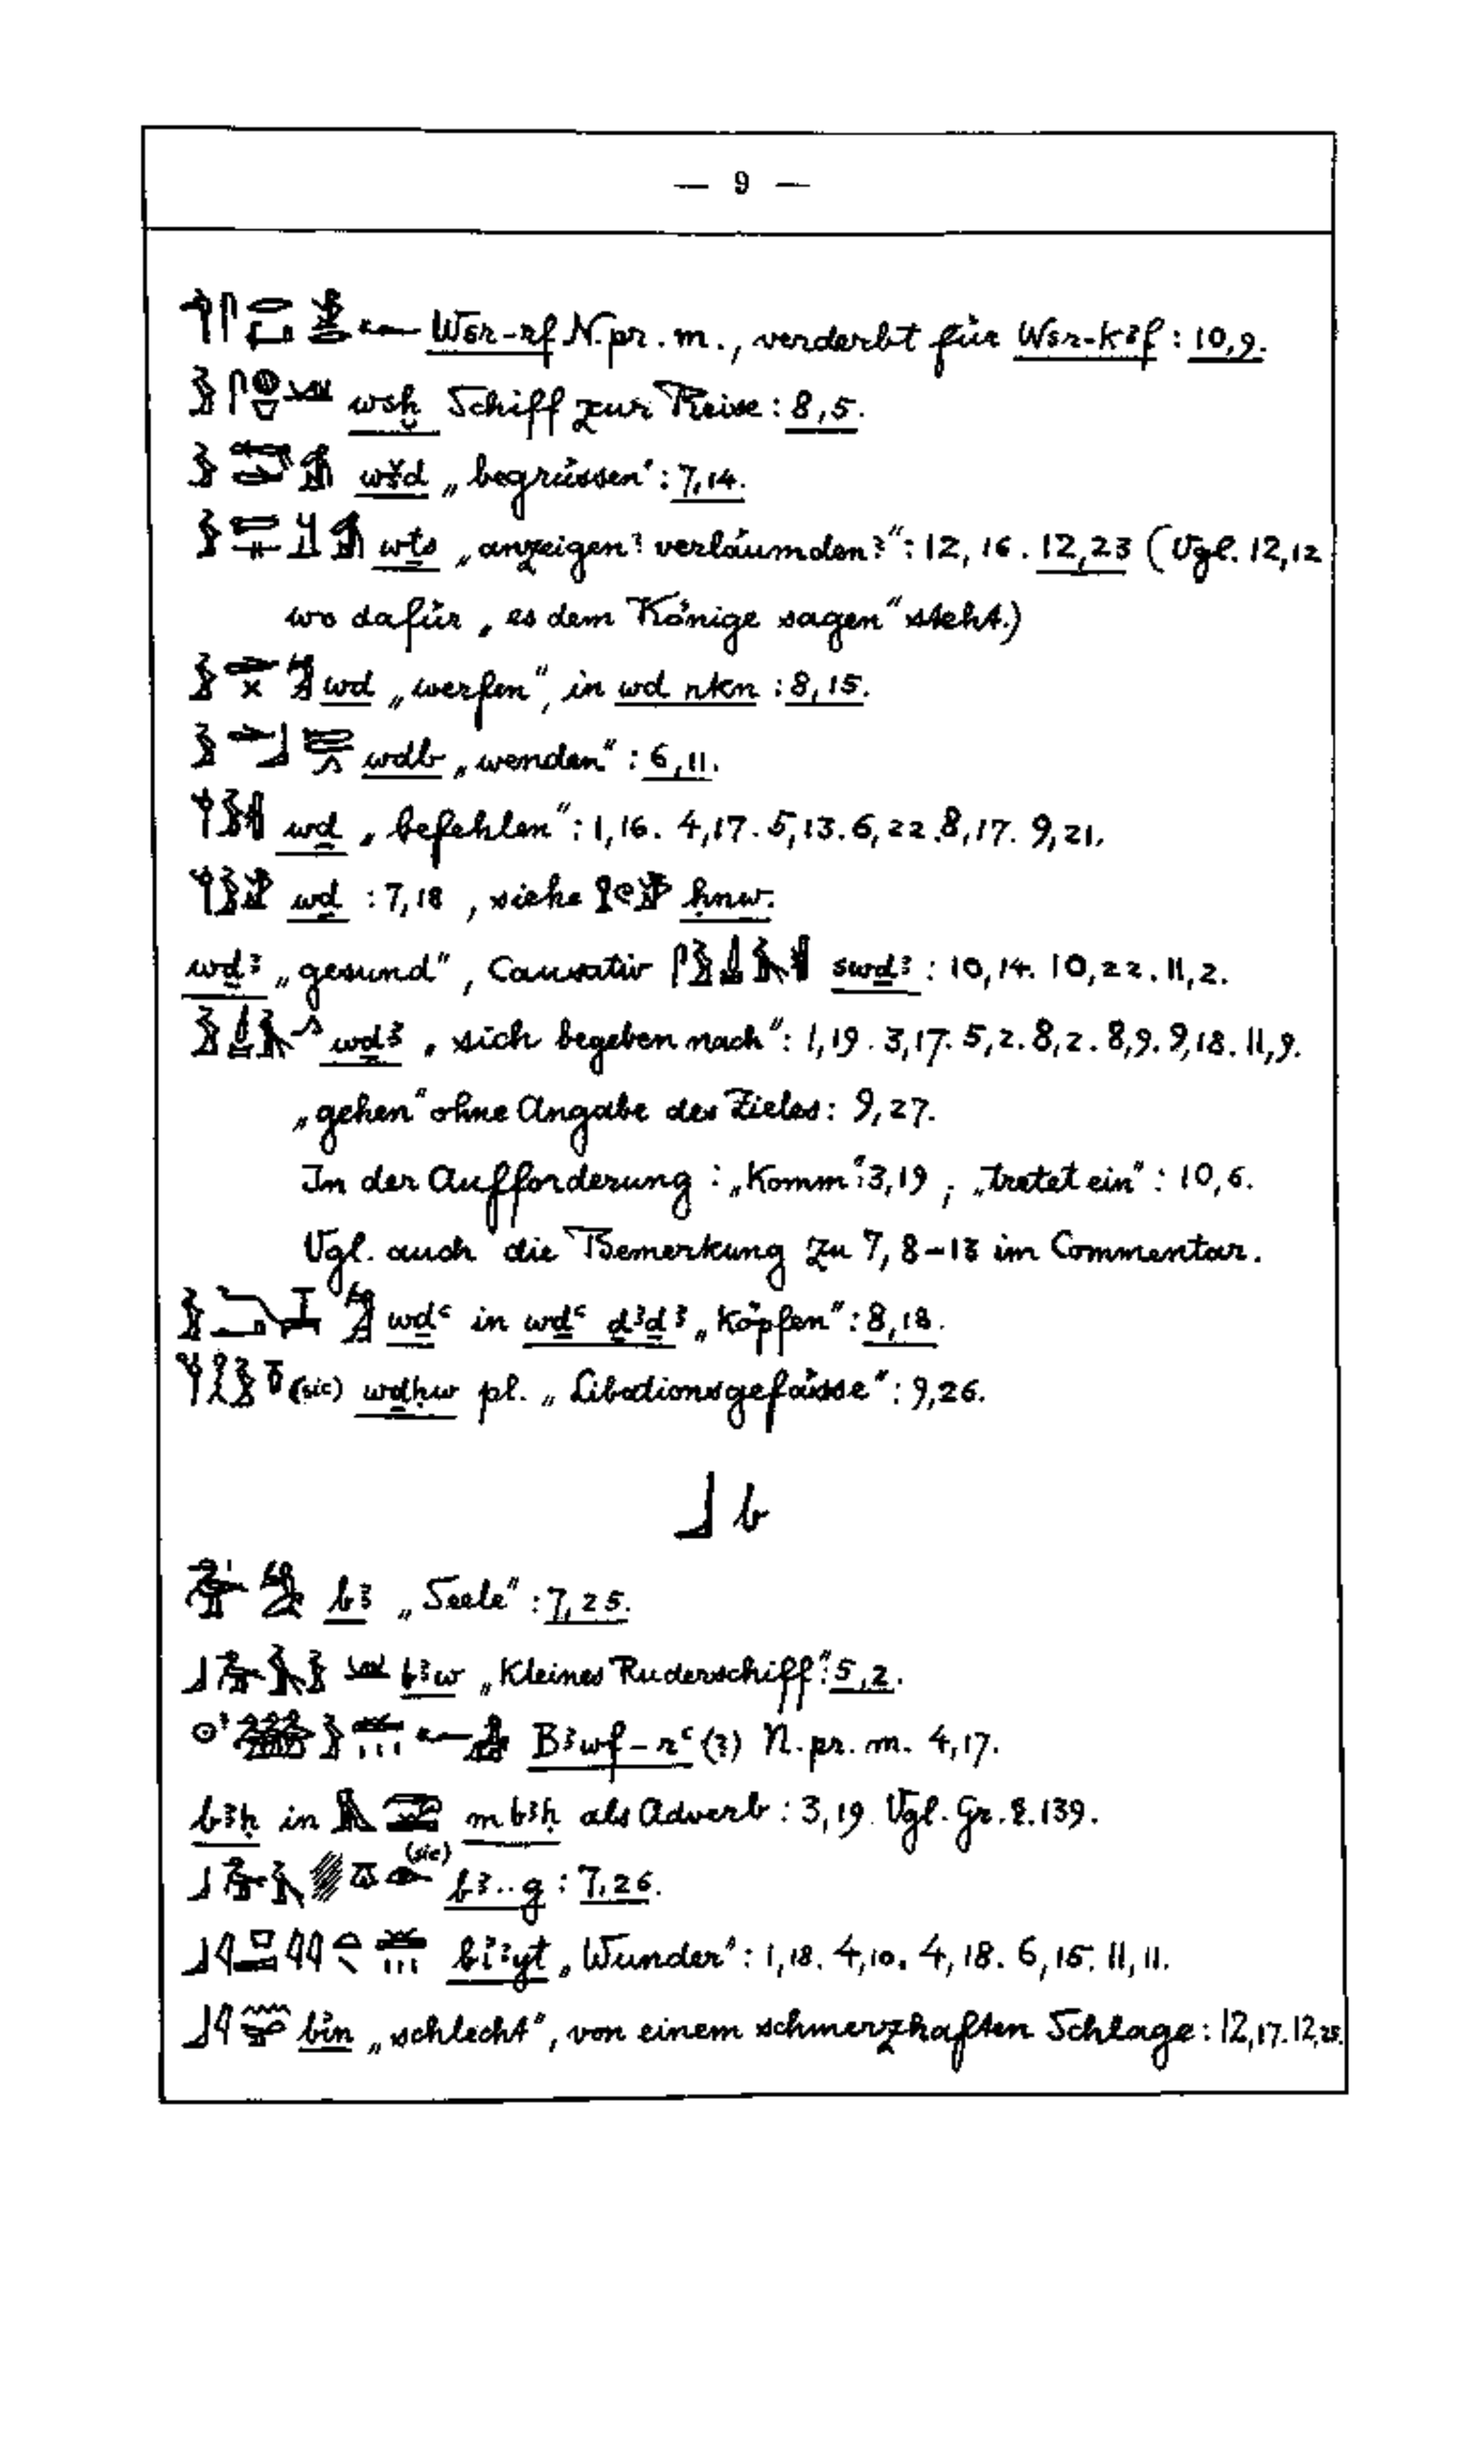 — 9 —
Wsr-rf N. pr. m., verderbt für Wsr-kꜣf : 10,9.
wsḫ Schiff zur Reise : 8,5.
wšd „begrüssen“ : 7,14.
wṯs „anzeigen? verläumden?“ : 12,16. 12,23 (Vgl. 12,12
wo dafür „es dem Könige sagen“ steht.)
wd „werfen“, in wd nkn : 8,15.
wdb „wenden“ : 6,11.
wḏ „befehlen“ : 1,16. 4,17. 5,13. 6,22. 8,17. 9,21.
wḏ : 7,18, siehe ḥnw.
wḏꜣ „gesund“, Causativ swḏꜣ : 10,14. 10,22. 11,2.
wḏꜣ „sich begeben nach“ : 1,19. 3,17. 5,2. 8,2. 8,9. 9,18. 11,9.
„gehen“ ohne Angabe des Zieles : 9,27.
In der Aufforderung : „Komm“ : 3,19 ; „tretet ein“ : 10,6.
Vgl. auch die Bemerkung zu 7,8–13 im Commentar.
wḏꜥ in wḏꜥ ḏꜣḏꜣ „köpfen“ : 8,18.
(sic) wḏḥw pl. „Libationsgefässe“ : 9,26.
𓃀 b
bꜣ „Seele“ : 7,25.
bꜣw „Kleines Ruderschiff“ : 5,2.
Bꜣwf-rꜥ (?) N. pr. m. 4,17.
bꜣḥ in m bꜣḥ als Adverb : 3,19. Vgl. Gr. §. 139.
(sic) bꜣ..g : 7,26.
bỉꜣyt „Wunder“ : 1,18. 4,10. 4,18. 6,15. 11,11.
bỉn „schlecht“, von einem schmerzhaften Schlage : 12,17. 12,25.